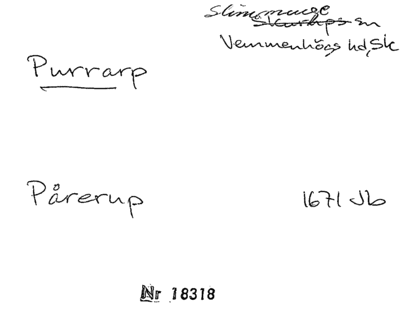 Slimminge
Skurups sn
Vemmenhögs hd, Sk
Purrarp
Pårerup 1671 Jb
Nr 18318